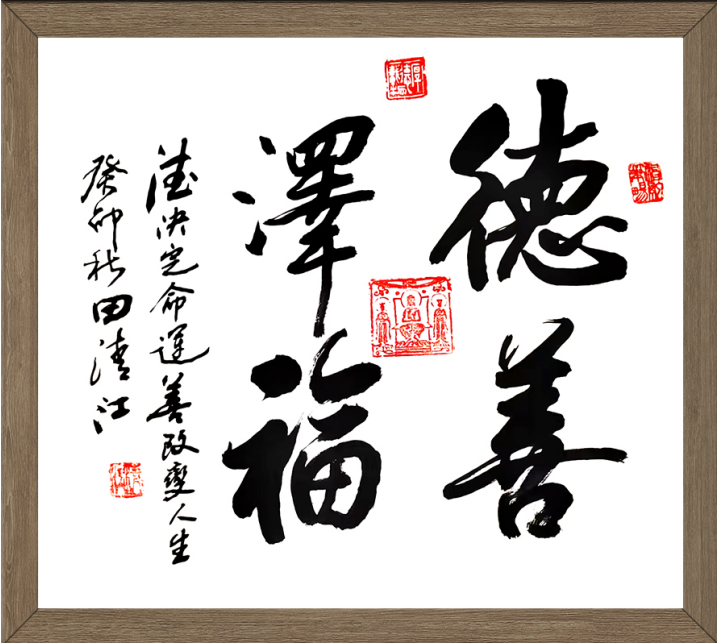 德善
澤福
德决定命運善改變人生
癸卯秋田清江